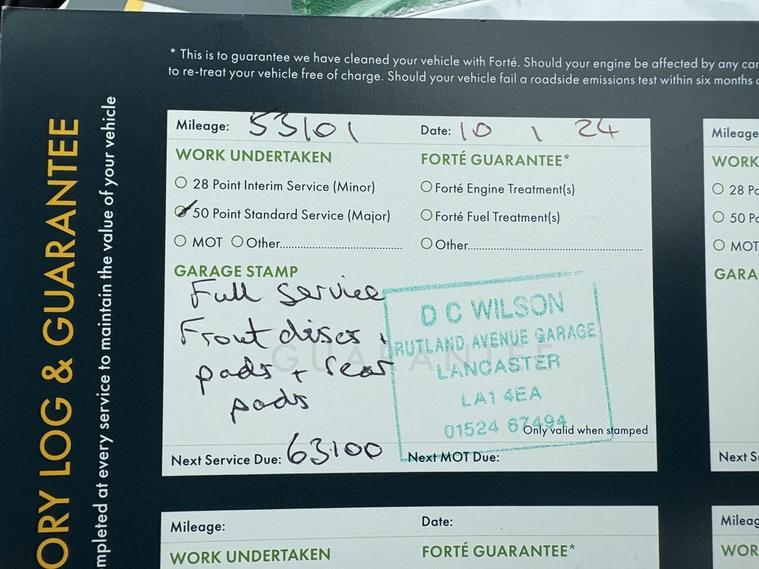 * This is to guarantee we have cleaned your vehicle with Forté. Should your engine be affected by any car
to re-treat your vehicle free of charge. Should your vehicle fail a roadside emissions test within six months
ORY LOG & GUARANTEE
mpleted at every service to maintain the value of your vehicle
Mileage: 53101 Date: 10 1 24
WORK UNDERTAKEN FORTÉ GUARANTEE*
28 Point Interim Service (Minor) Forté Engine Treatment(s)
50 Point Standard Service (Major) Forté Fuel Treatment(s)
MOT Other Other
GARAGE STAMP
Full service
Front discs +
pads + rear
pads
GUARANTEE
D C WILSON
RUTLAND AVENUE GARAGE
LANCASTER
LA1 4EA
01524 67494
Only valid when stamped
Next Service Due: 63100 Next MOT Due:
Mileage: Date:
WORK UNDERTAKEN FORTÉ GUARANTEE*
Mileage
WORK
28 Po
50 Po
MOT
GARA
Next S
Mileag
WOR